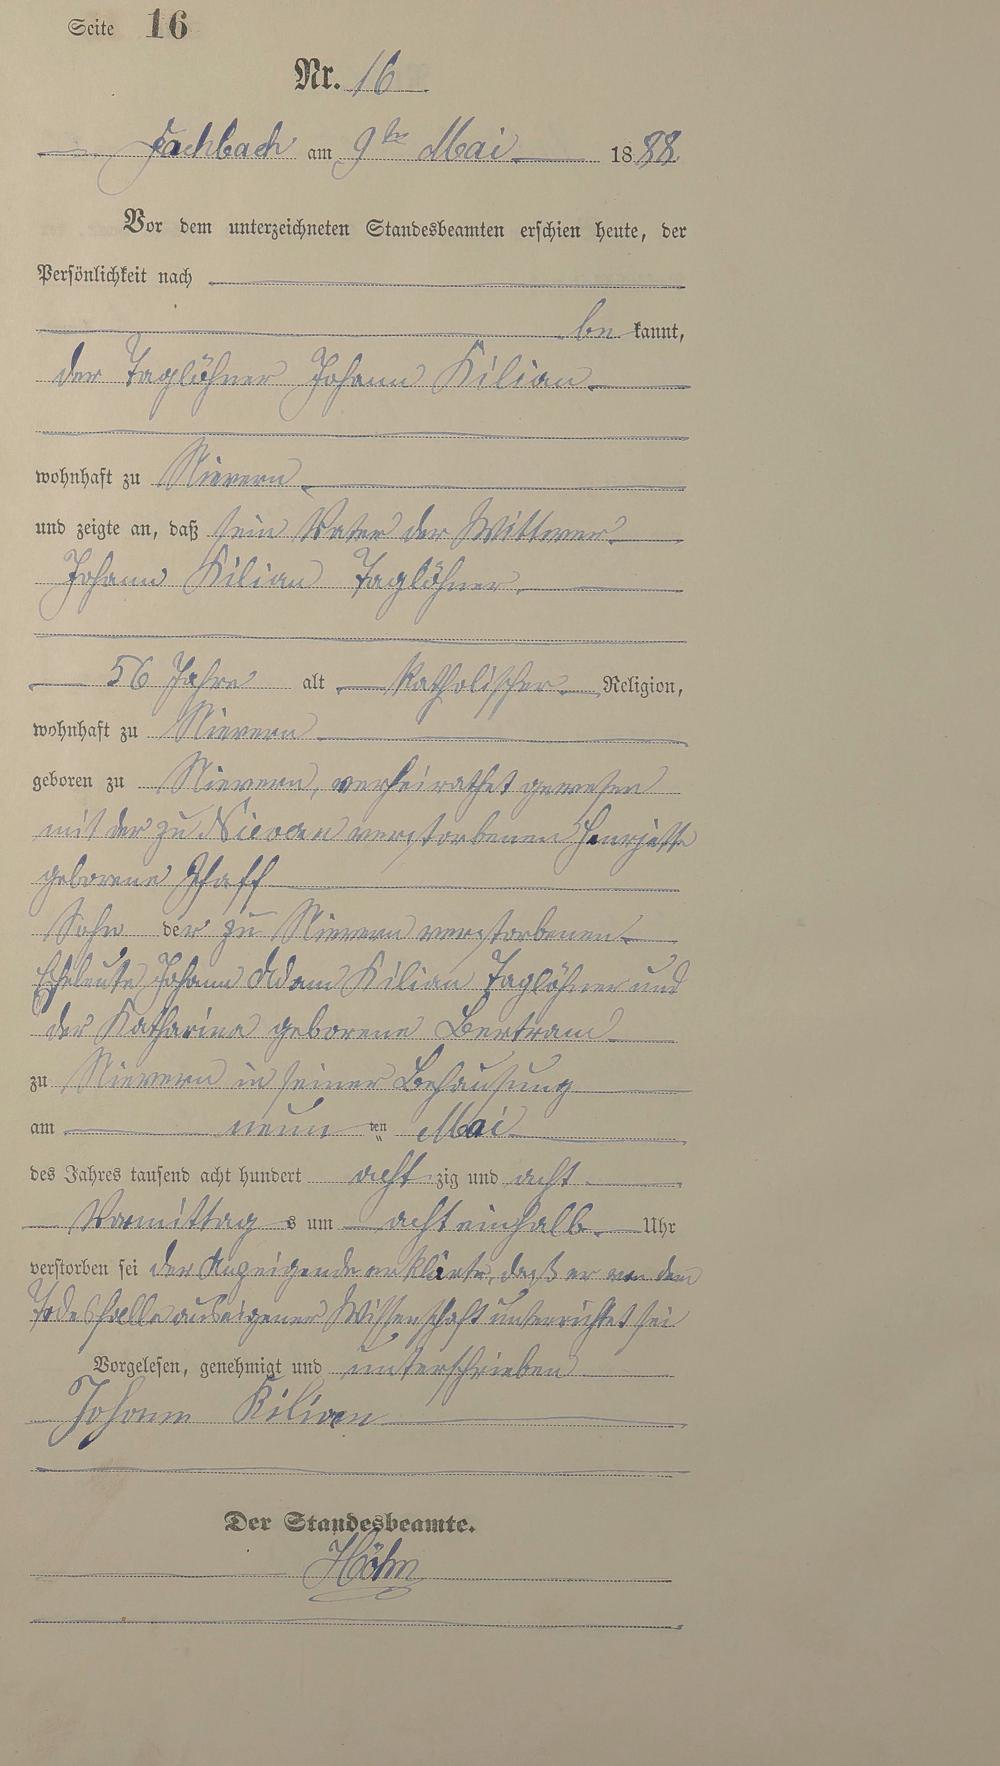 Seite 16
Nr. 16
Fachbach am 9ten Mai 1888
Vor dem unterzeichneten Standesbeamten erschien heute, der
Persönlichkeit nach
be kannt,
der Taglöhner Johann Kilian
wohnhaft zu Nievern
und zeigte an, daß sein Vater der Wittwer
Johann Kilian Taglöhner
56 Jahre alt Katholischer Religion,
wohnhaft zu Nievern
geboren zu Nievern, verheirathet gewesen
mit der zu Nievern verstorbenen Henriette
geborene Schaff
Sohn der zu Nievern verstorbenen
Eheleute Johann Adam Kilian Taglöhner und
der Katharina geborene Bertram
zu Nievern in seiner Behausung
am neun ten Mai
des Jahres tausend acht hundert acht zig und acht
Vormittag s um acht einhalb Uhr
verstorben sei der Anzeigende erklärte, daß er von dem
Todesfalle aus eigener Wissenschaft unterrichtet sei
Vorgelesen, genehmigt und unterschrieben
Johann Kilian
Der Standesbeamte.
Höhn